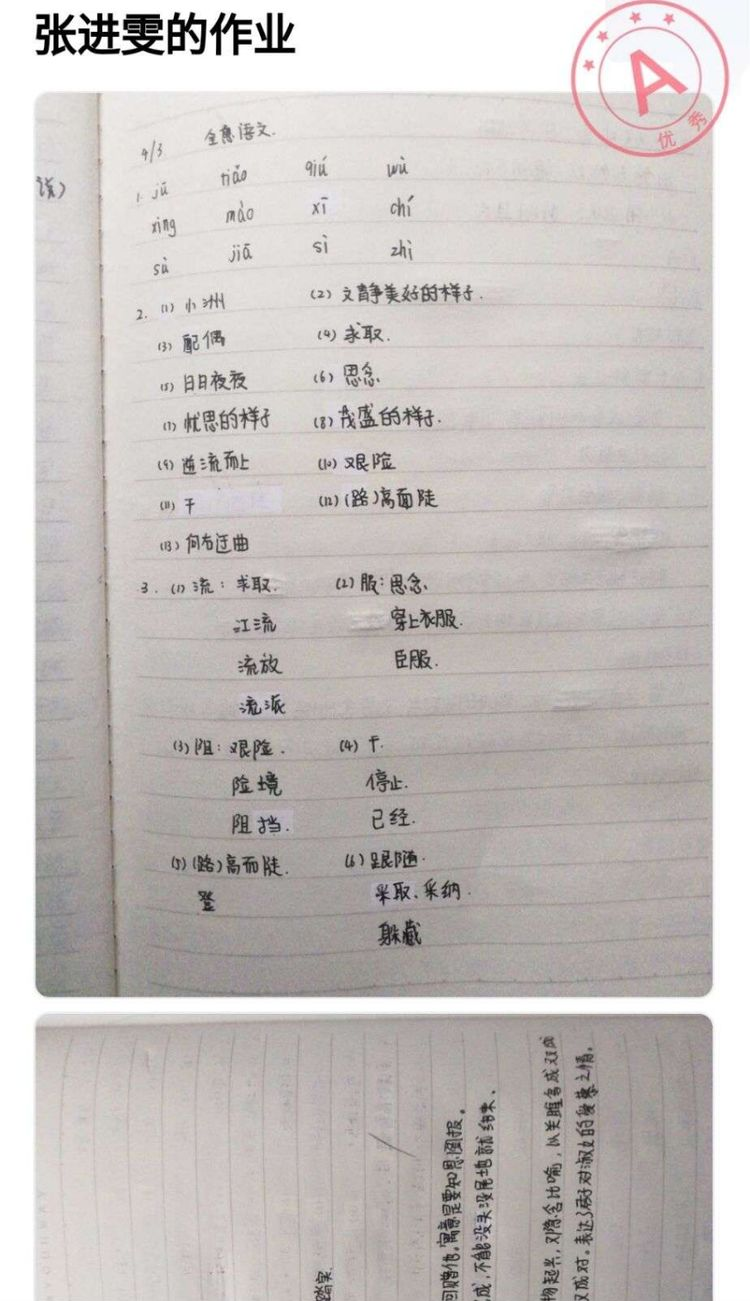 张进雯的作业
A
优秀
4/3 全息语文.
1. jū tiáo qiú wù
xìng mào xī chí
sù jiā sì zhì
2. (1) 小洲 (2) 文静美好的样子.
(3) 配偶 (4) 求取.
(5) 日日夜夜 (6) 思念
(7) 忧思的样子 (8) 茂盛的样子.
(9) 逆流而上 (10) 艰险
(11) 干 (12) (路)高而陡
(13) 向右迂曲
3. (1) 流: 求取. (2) 服: 思念、
江流 穿上衣服.
流放 臣服.
流派
(3) 阻: 艰险. (4) 干.
险境 停止.
阻挡. 已经.
(5) (路)高而陡. (6) 跟随.
登 采取、采纳.
躲藏
回赠他。寓意是要知恩图报。
成,不能没头没尾地就结束、
物起兴,又隐含比喻,以关雎鸟成双成
又成对。表达了君子对淑女的爱慕之情。
踏实.